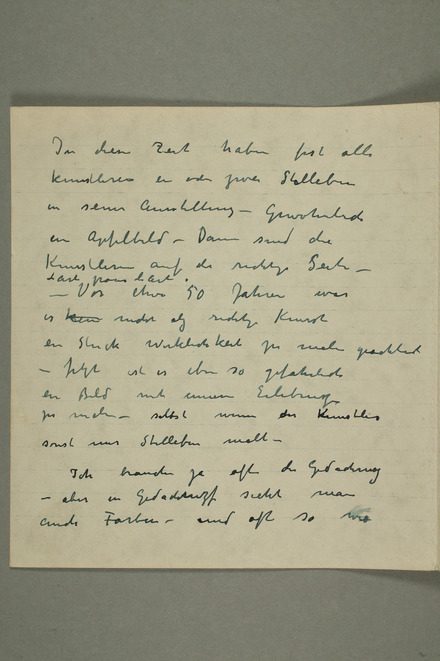 In dieser Zeit haben fast alle
Künstlerin ein oder zwei Stilleben
in seiner Ausstellung – Gewöhnlich
ein Apfelbild – Dann sind die
Künstlerin auf der richtige Seite –
– Vor etwa 50 Jahren war
es kein nicht als richtige Kunst
ein Stück Wirklichkeit zu malen
– jetzt ist es eben so gefährlich
ein Bild mit
zu malen – selbst wenn der Künstler
sonst nur Stilleben malt –
Ich brauche ja oft
– aber in sieht man
Farben – und oft so wie